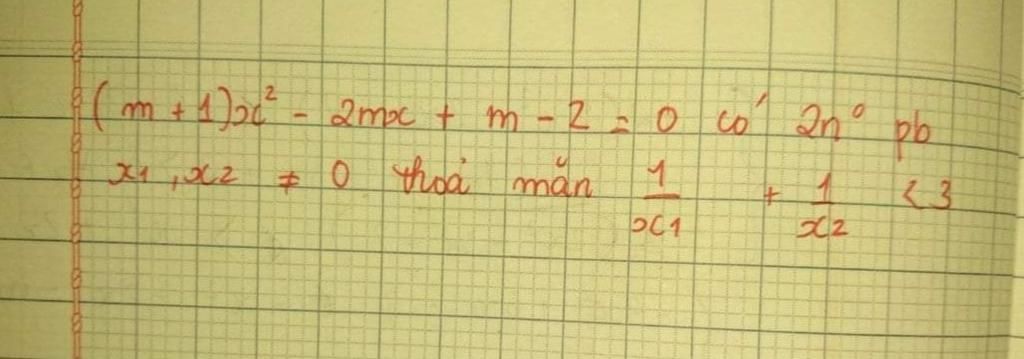 (m + 1)x² - 2mx + m - 2 = 0 có 2n° pb
x1, x2 ≠ 0 thoả mãn 1/x1 + 1/x2 < 3